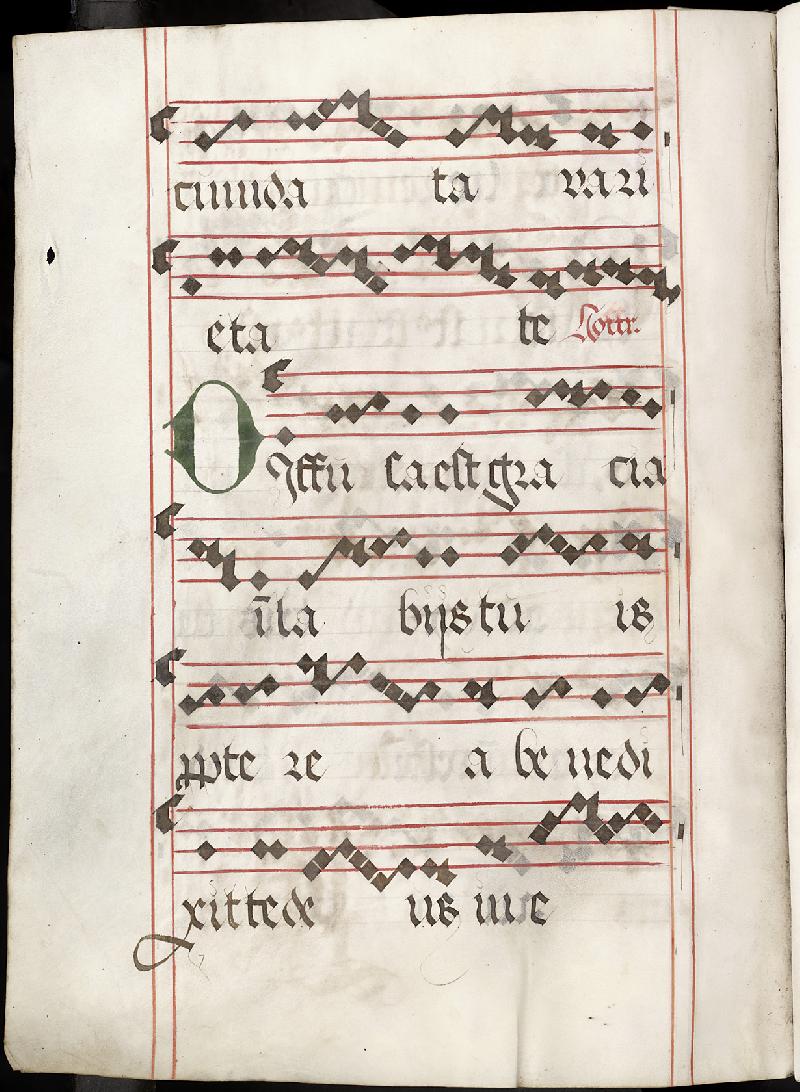 cumda ta vari
eta te Offtr.
Diffu sa est gra cia
ī la bijs tu is
ppte re a be nedi
xit te de us in e